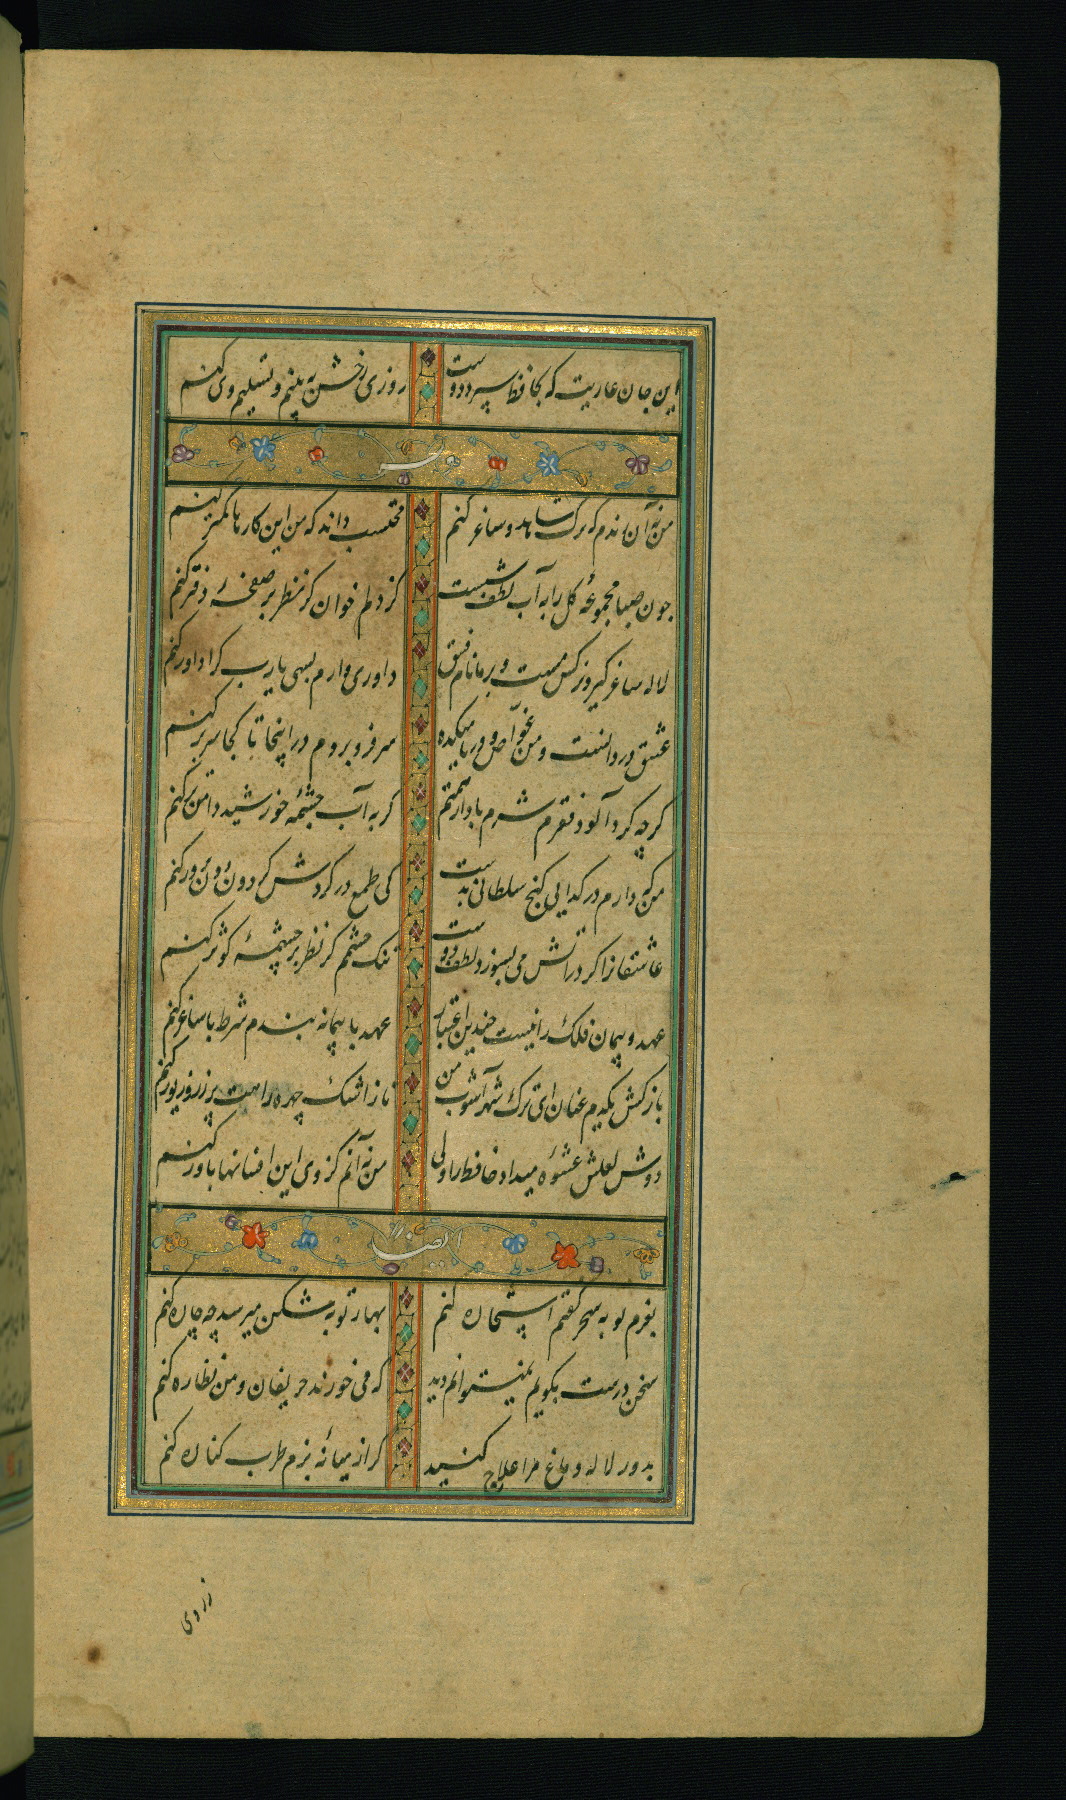 این جان عاریت که بحافظ سپرد دوست روزی رخش به بینم و تسلیم وی کنم
من نه آن رندم که ترک شاهد و ساغر کنم محتسب داند که من این کارها کمتر کنم
چون صبا مجموعهٔ گل را به آب لطف شست کژ دلم خوان کر نظر بر صفحهٔ دفتر کنم
لاله ساغر کیر و نرکس مست و بر ما نام فسق داوری دارم بسی یارب کرا داور کنم
عشق دردانست و من غواص و دریا میکده سر فرو بردم در اینجا تا کجا سر بر کنم
کرچه کرد آلود فقرم شرم باد از همتم کر به آب چشمهٔ خورشید دامن تر کنم
من که دارم در کدایی کنج سلطانی بدست کی طمع در کردش کردون دون پرور کنم
عاشقانرا کر در آتش می بسوزد لطف دوست تنک چشمم کر نظر بر چشمهٔ کوثر کنم
عهد و پیمان فلک را نیست چندین اعتبار عهد با پیمانه بندم شرط با ساغر کنم
باز کش یکدم عنان ای ترک شهر آشوب من تا ز اشک چهره راهت پر زر و زیور کنم
دوش لعلش عشوهٔ میداد حافظ را ولی من نه آنم کز وی این افسانها باور کنم
ایضا
بعزم توبه سحر کفتم استخاره کنم بهار توبه شکن میرسد چه چاره کنم
سخن درست بکویم نمیتوانم دید که می خورند حریفان و من نظاره کنم
بدور لاله دماغ مرا علاج کنید کر از میانهٔ بزم طرب کناره کنم
ز روی